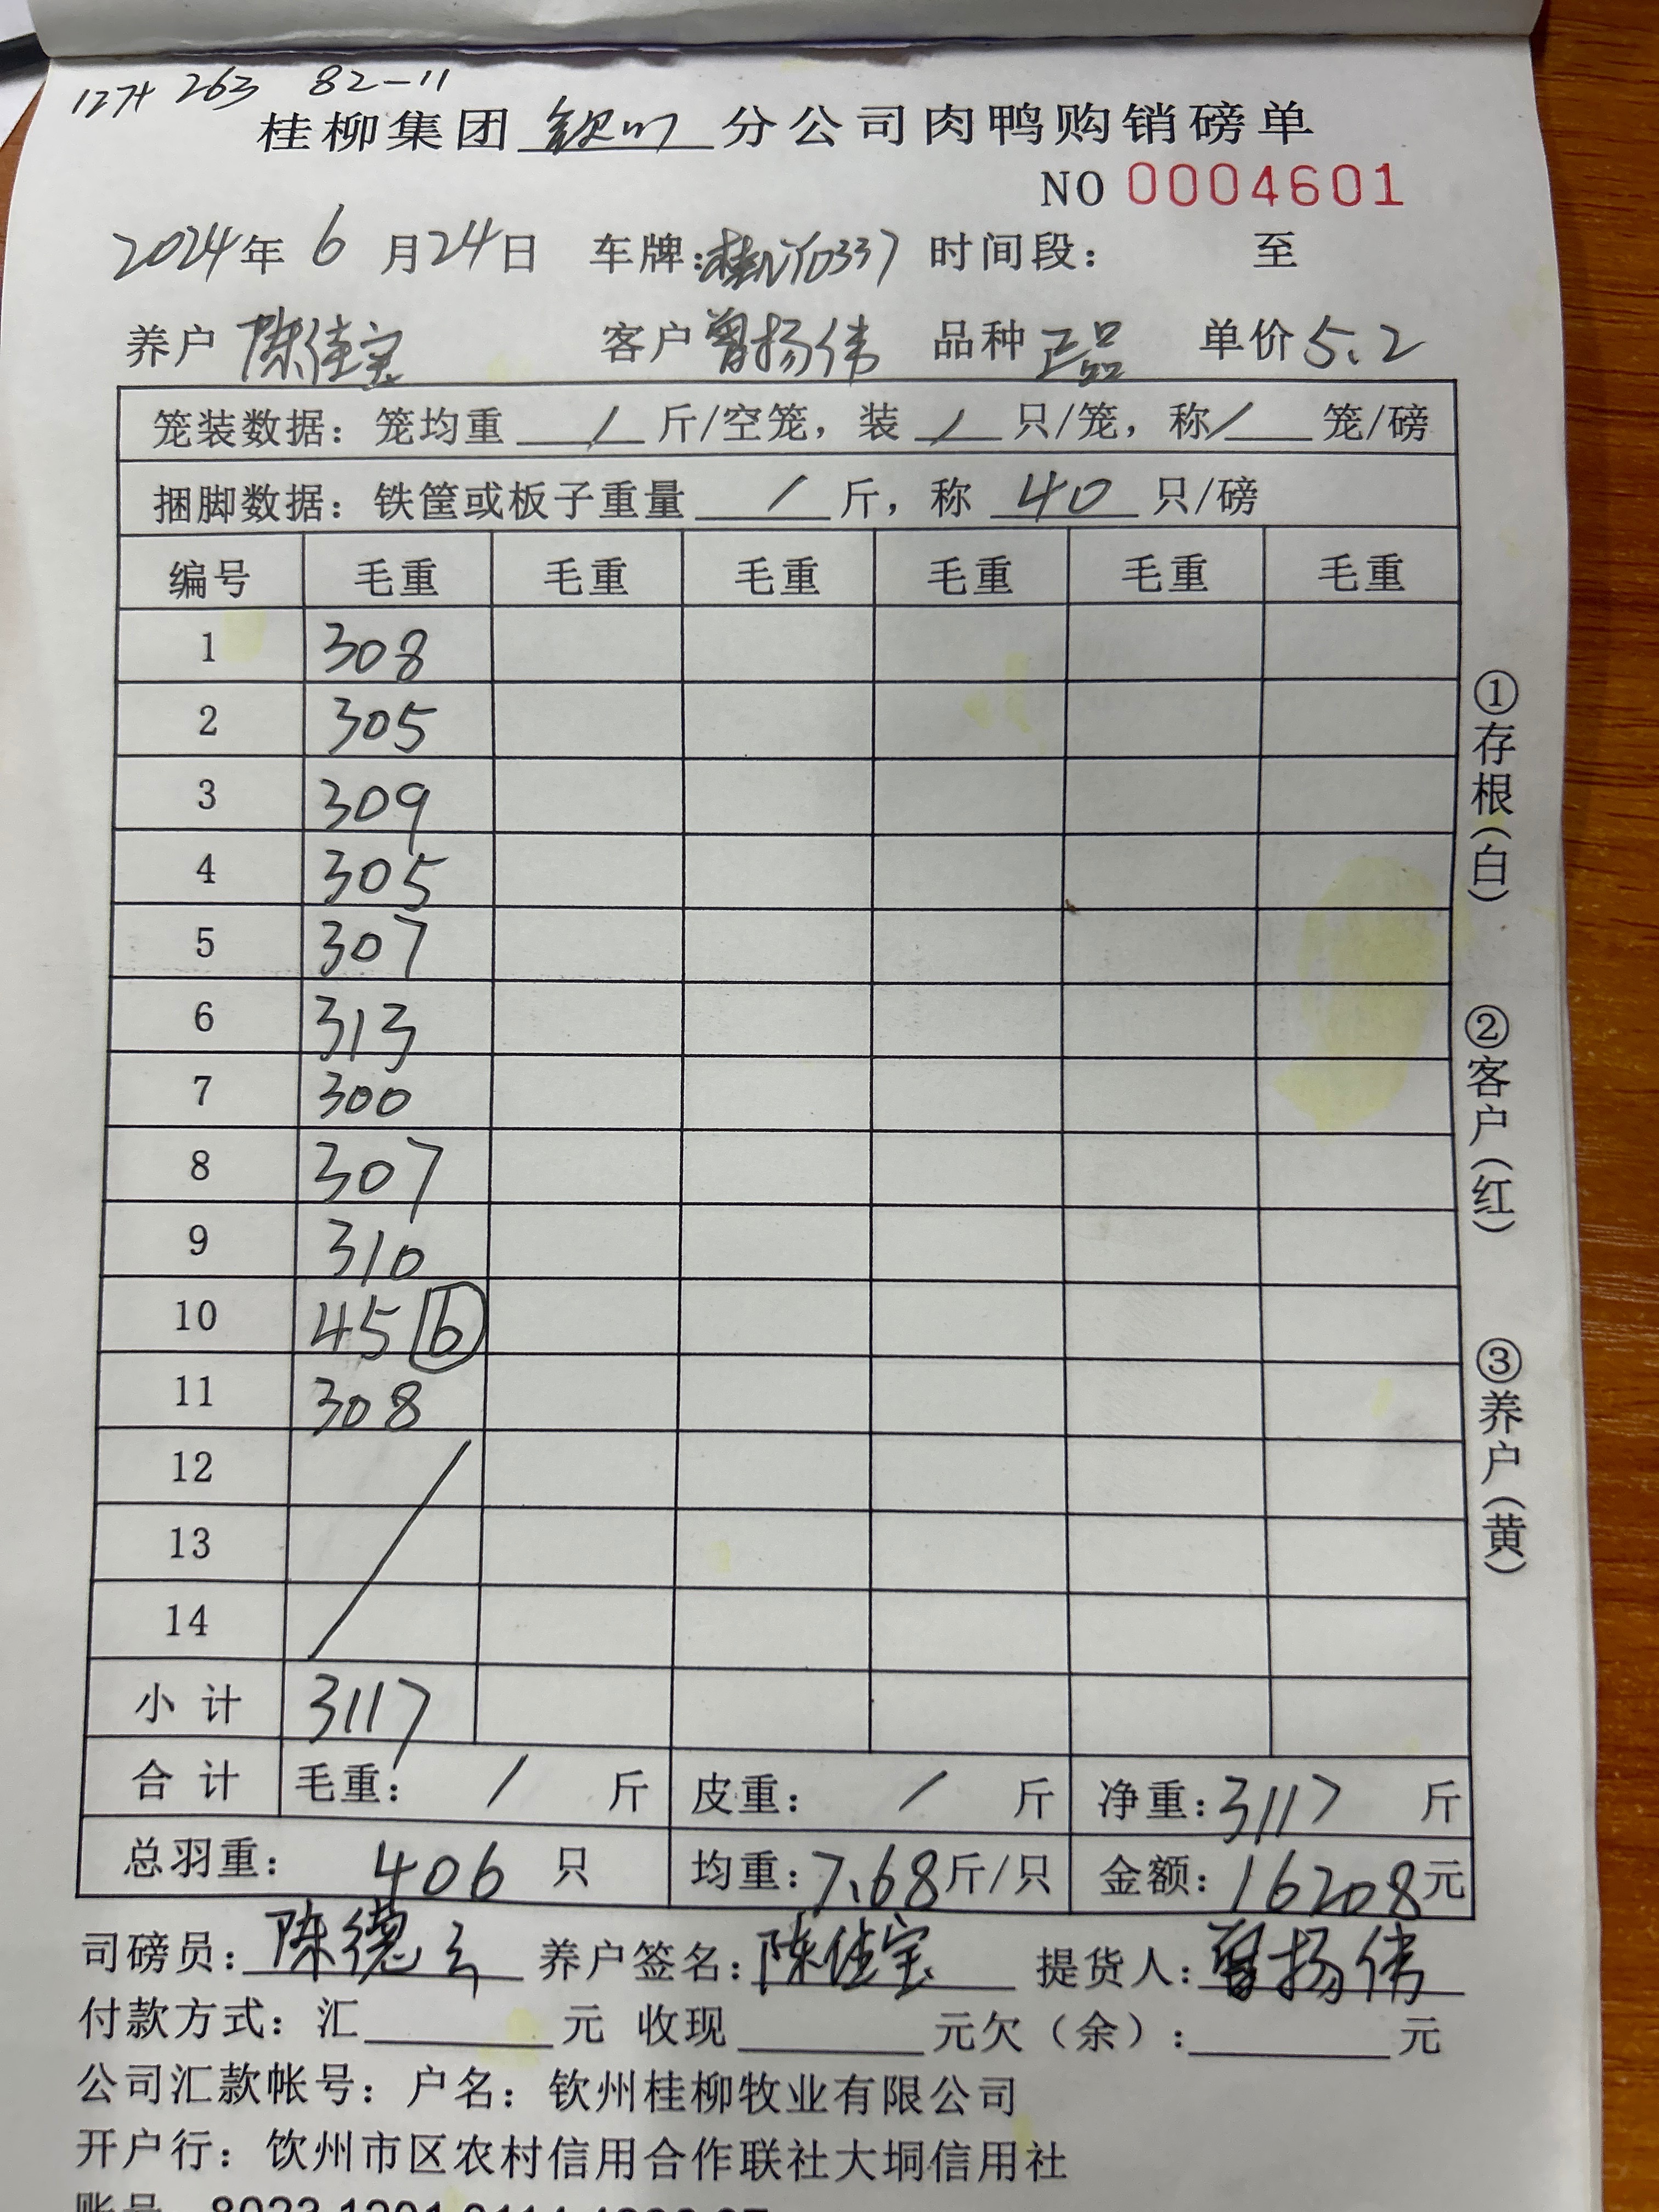 127+ 263 82-11
桂柳集团 钦州 分公司肉鸭购销磅单
NO 0004601
2024年 6 月24日 车牌:桂NY0337 时间段: 至
养户 陈佳宝 客户 曾扬伟 品种 正品 单价 5.2
笼装数据: 笼均重 / 斤/空笼, 装 / 只/笼, 称 / 笼/磅
捆脚数据: 铁筐或板子重量 / 斤, 称 40 只/磅
编号 毛重 毛重 毛重 毛重 毛重 毛重
1 308
2 305
3 309
4 305
5 307
6 313
7 300
8 307
9 310
10 45 6
11 308
12
13
14
小计 3117
合计 毛重: / 斤 皮重: / 斤 净重: 3117 斤
总羽重: 406 只 均重: 7.68 斤/只 金额: 16208 元
①存根(白) ②客户(红) ③养户(黄)
司磅员: 陈德云 养户签名: 陈佳宝 提货人: 曾扬伟
付款方式: 汇 元 收现 元欠(余): 元
公司汇款帐号: 户名: 钦州桂柳牧业有限公司
开户行: 钦州市区农村信用合作联社大垌信用社